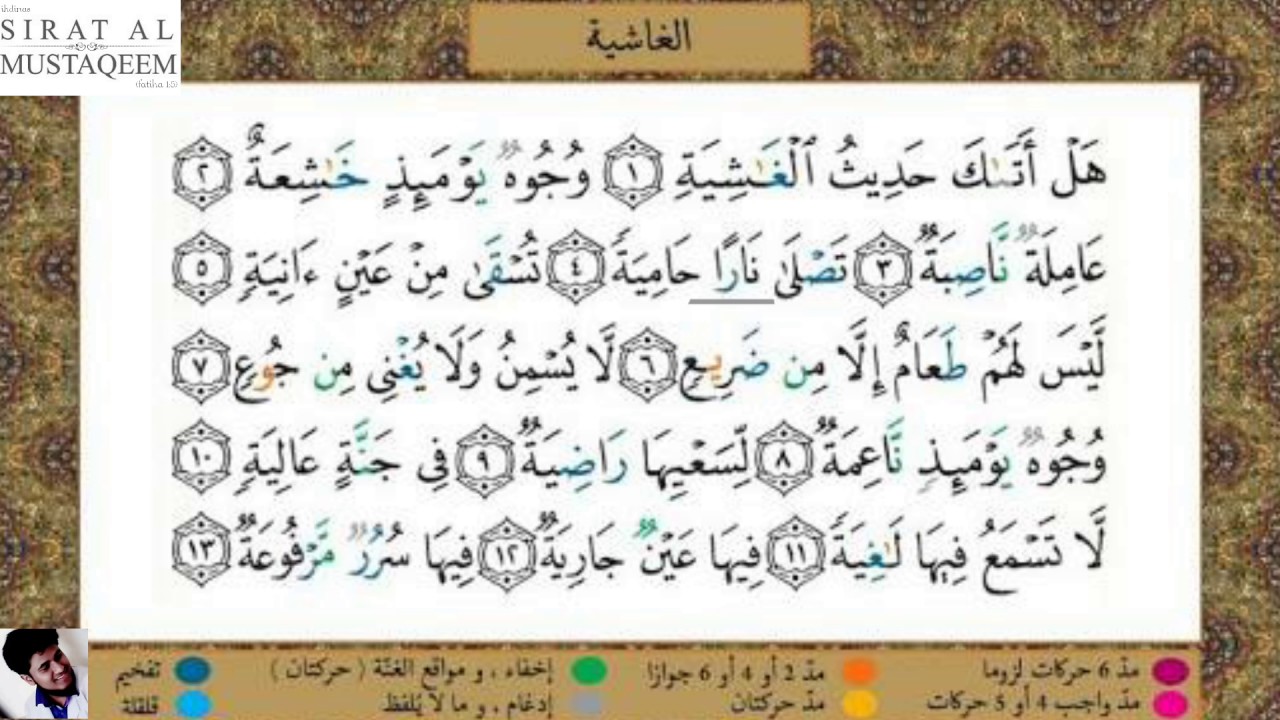 ihdinas
SIRAT AL
MUSTAQEEM
(fatiha 1:5)
الغاشية
هَلْ أَتَىٰكَ حَدِيثُ ٱلْغَـٰشِيَةِ ١ وُجُوهٌ يَوْمَئِذٍ خَـٰشِعَةٌ ٢
عَامِلَةٌ نَّاصِبَةٌ ٣ تَصْلَىٰ نَارًا حَامِيَةً ٤ تُسْقَىٰ مِنْ عَيْنٍ ءَانِيَةٍ ٥
لَّيْسَ لَهُمْ طَعَامٌ إِلَّا مِن ضَرِيعٍ ٦ لَّا يُسْمِنُ وَلَا يُغْنِى مِن جُوعٍ ٧
وُجُوهٌ يَوْمَئِذٍ نَّاعِمَةٌ ٨ لِّسَعْيِهَا رَاضِيَةٌ ٩ فِى جَنَّةٍ عَالِيَةٍ ١٠
لَّا تَسْمَعُ فِيهَا لَـٰغِيَةً ١١ فِيهَا عَيْنٌ جَارِيَةٌ ١٢ فِيهَا سُرُرٌ مَّرْفُوعَةٌ ١٣
مدّ 6 حركات لزوما مدّ 2 أو 4 أو 6 جوازا إخفاء ، و مواقع الغنّة ( حركتان ) تفخيم
مدّ واجب 4 أو 5 حركات مدّ حركتان إدغام ، و ما لا يُلفظ قلقلة